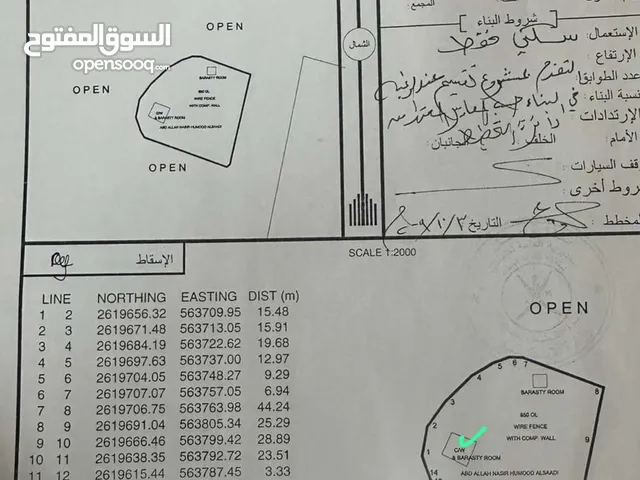 السوق المفتوح
opensooq.com
OPEN
OPEN
OPEN
BARASTY ROOM
850 OL
WIRE FENCE
WITH COMP. WALL
C/W
& BARASTY ROOM
ABD ALLAH NASIR HUMOOD ALSAADI
الشمال
المجمع:
شروط البناء
الإستعمال: سكني فقط
الإرتفاع:
عدد الطوابق:
نسبة البناء:
الإرتدادات
الأمام: الخلف: الجانبان:
موقف السيارات:
شروط أخرى:
المخطط: التاريخ
SCALE 1:2000
الإسقاط
LINE NORTHING EASTING DIST (m)
1 2 2619656.32 563709.95 15.48
2 3 2619671.48 563713.05 15.91
3 4 2619684.19 563722.62 19.68
4 5 2619697.63 563737.00 12.97
5 6 2619704.05 563748.27 9.29
6 7 2619707.07 563757.05 6.94
7 8 2619706.75 563763.98 44.24
8 9 2619691.04 563805.34 25.29
9 10 2619666.46 563799.42 28.89
10 11 2619638.35 563792.72 23.51
11 12 2619615.44 563787.45 3.33
OPEN
1
2
3
4
5
6
7
8
9
14
BARASTY ROOM
850 OL
WIRE FENCE
WITH COMP. WALL
C/W
& BARASTY ROOM
ABD ALLAH NASIR HUMOOD ALSAADI